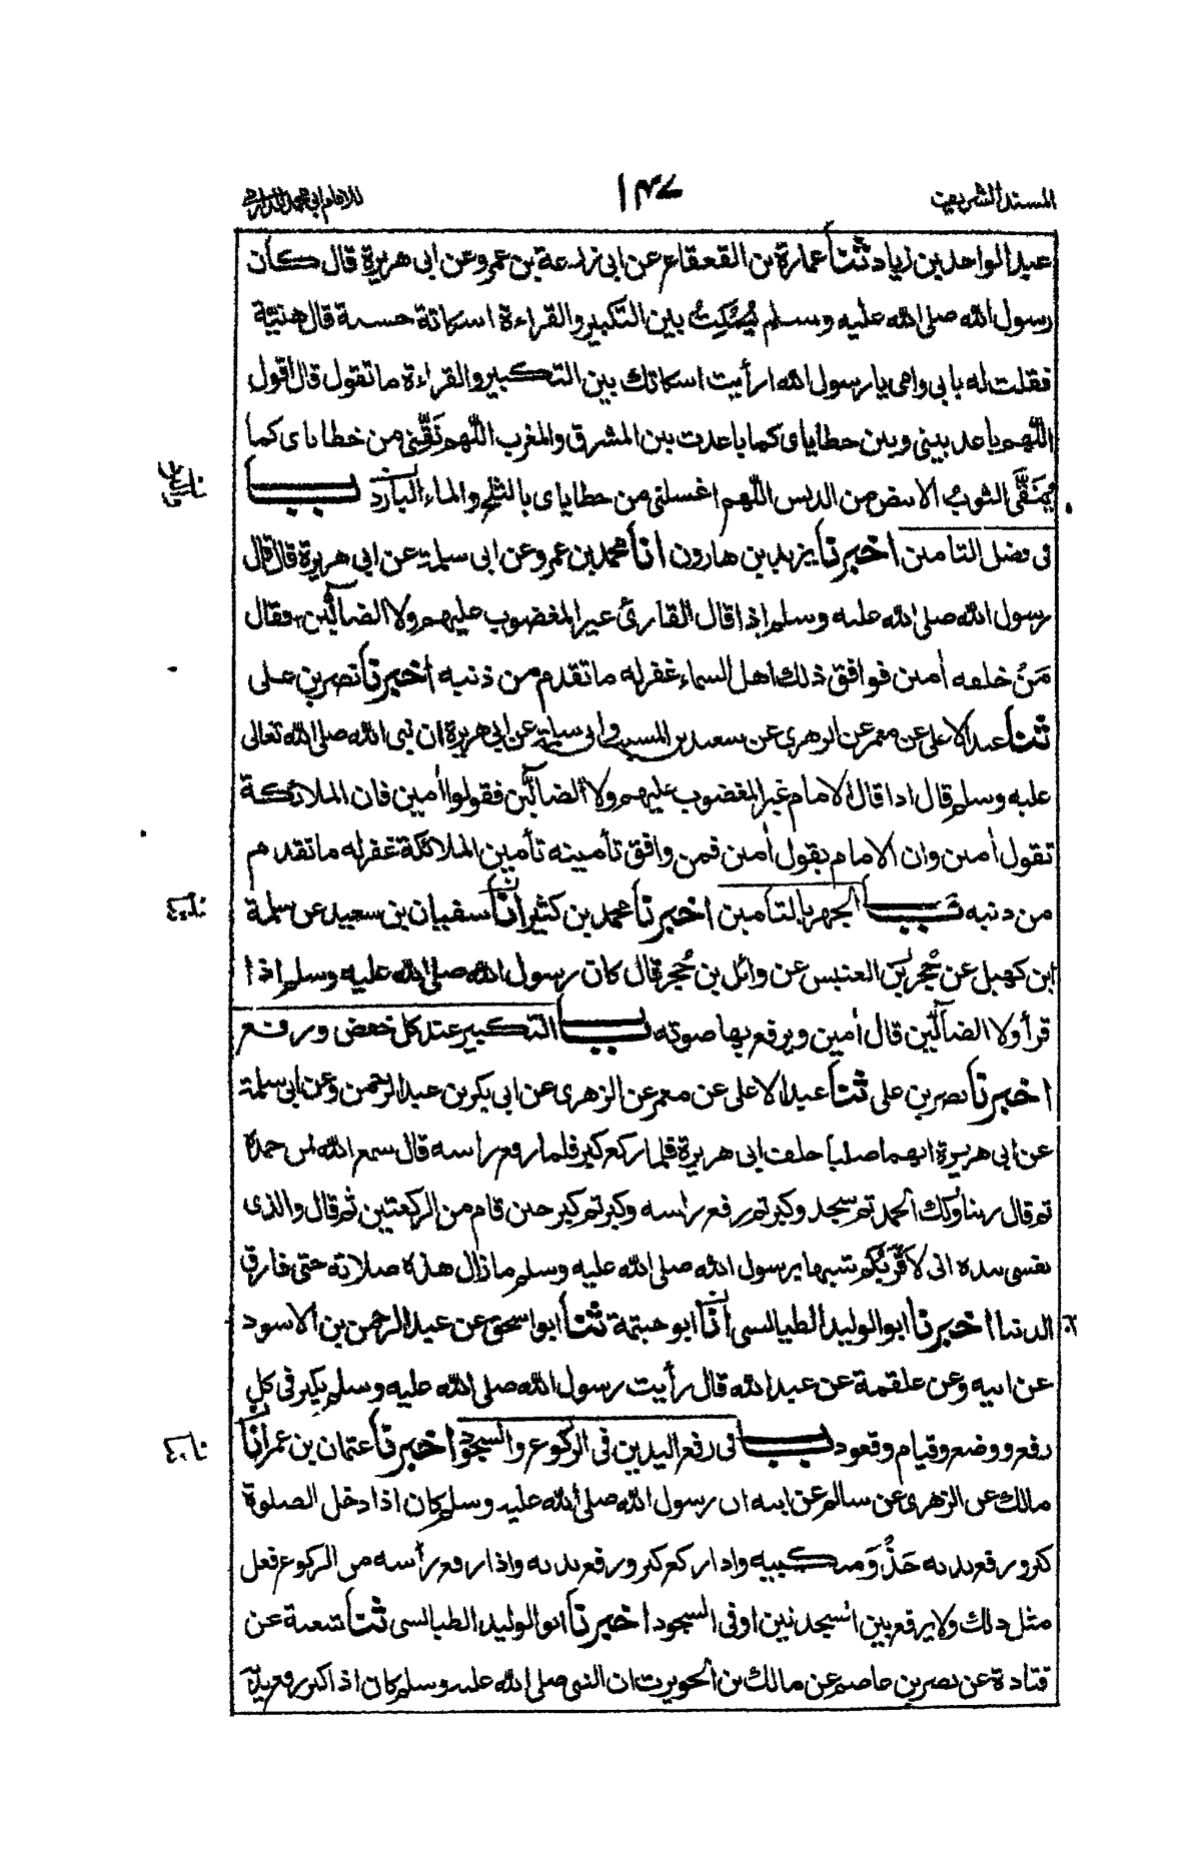 المسند الشريف
١٤٧
للامام ابي محمد الدارمي
عبد الواحد بن زياد ثنا عمارة بن القعقاع عن ابي زرعة بن عمرو عن ابى هريرة قال كان
رسول الله صلى الله عليه وسلم يُسْكِتُ بين التكبير والقراءة اسكاتة حسبته قال هنئية
فقلت له بابى وامى يا رسول الله ارأيت اسكاتك بين التكبير والقراءة ما تقول قال أقول
اللهم باعد بينى وبين خطاياى كما باعدت بين المشرق والمغرب اللهم نَقِّنِى من خطاياى كما
يُنَقَّى الثوبُ الابيض من الدنس اللهم اغسلنى من خطاياى بالثلج والماء البارد باب
فى فضل التامين اخبرنا يزيد بن هارون انا محمد بن عمرو عن ابى سلمة عن ابى هريرة قال قال
رسول الله صلى الله عليه وسلم اذا قال القارئ غير المغضوب عليهم ولا الضالّين فقال
مَنْ خلفه أمين فوافق ذلك اهل السماء غفر له ما تقدم من ذنبه اخبرنا نصر بن على
ثنا عبد الاعلى عن معمر عن الزهرى عن سعيد بن المسيب وابى سلمة عن ابى هريرة ان نبى الله صلى الله تعالى
عليه وسلم قال اذا قال الامام غير المغضوب عليهم ولا الضالّين فقولوا أمين فان الملائكة
تقول أمين وان الامام يقول أمين فمن وافق تأمينه تأمين الملائكة غفر له ما تقدم
من ذنبه باب الجهر بالتأمين اخبرنا محمد بن كثير انا سفيان بن سعيد عن سلمة
ابن كهيل عن حُجْر بْنِ العنبس عن وائل بن حُجْر قال كان رسول الله صلى الله عليه وسلم اذا
قرأ ولا الضالّين قال أمين ويرفع بها صوته باب التكبير عند كل خفض ورفع
اخبرنا نصر بن على ثنا عبد الاعلى عن معمر عن الزهرى عن ابى بكر بن عبد الرحمن وعن ابى سلمة
عن ابى هريرة انهما صليا خلف ابى هريرة فلما ركع كبر فلما رفع راسه قال سمع الله لمن حمده
ثم قال ربنا ولك الحمد ثم سجد وكبر ثم رفع رأسه وكبر ثم كبر حين قام من الركعتين ثم قال والذى
نفسى بيده انى لاقربكم شبها برسول الله صلى الله عليه وسلم ما زال هذه صلاته حتى فارق
الدنيا اخبرنا ابو الوليد الطيالسى انا ابو خيثمة ثنا ابو اسحق عن عبد الرحمن بن الاسود
عن ابيه وعن علقمة عن عبد الله قال رأيت رسول الله صلى الله عليه وسلم يكبر فى كل
رفع ووضع وقيام وقعود باب فى رفع اليدين فى الركوع والسجود اخبرنا عثمان بن عمر انا
مالك عن الزهرى عن سالم عن ابيه ان رسول الله صلى الله عليه وسلم كان اذا دخل الصلوة
كبر ورفع يديه حَذْوَ منكبيه واذا ركع كبر ورفع يديه واذا رفع رأسه من الركوع فعل
مثل ذلك ولا يرفع بين السجدتين او فى السجود اخبرنا ابو الوليد الطيالسى ثنا شعبة عن
قتادة عن نصر بن عاصم عن مالك بن الحويرث ان النبى صلى الله عليه وسلم كان اذا كبر رفع يديه